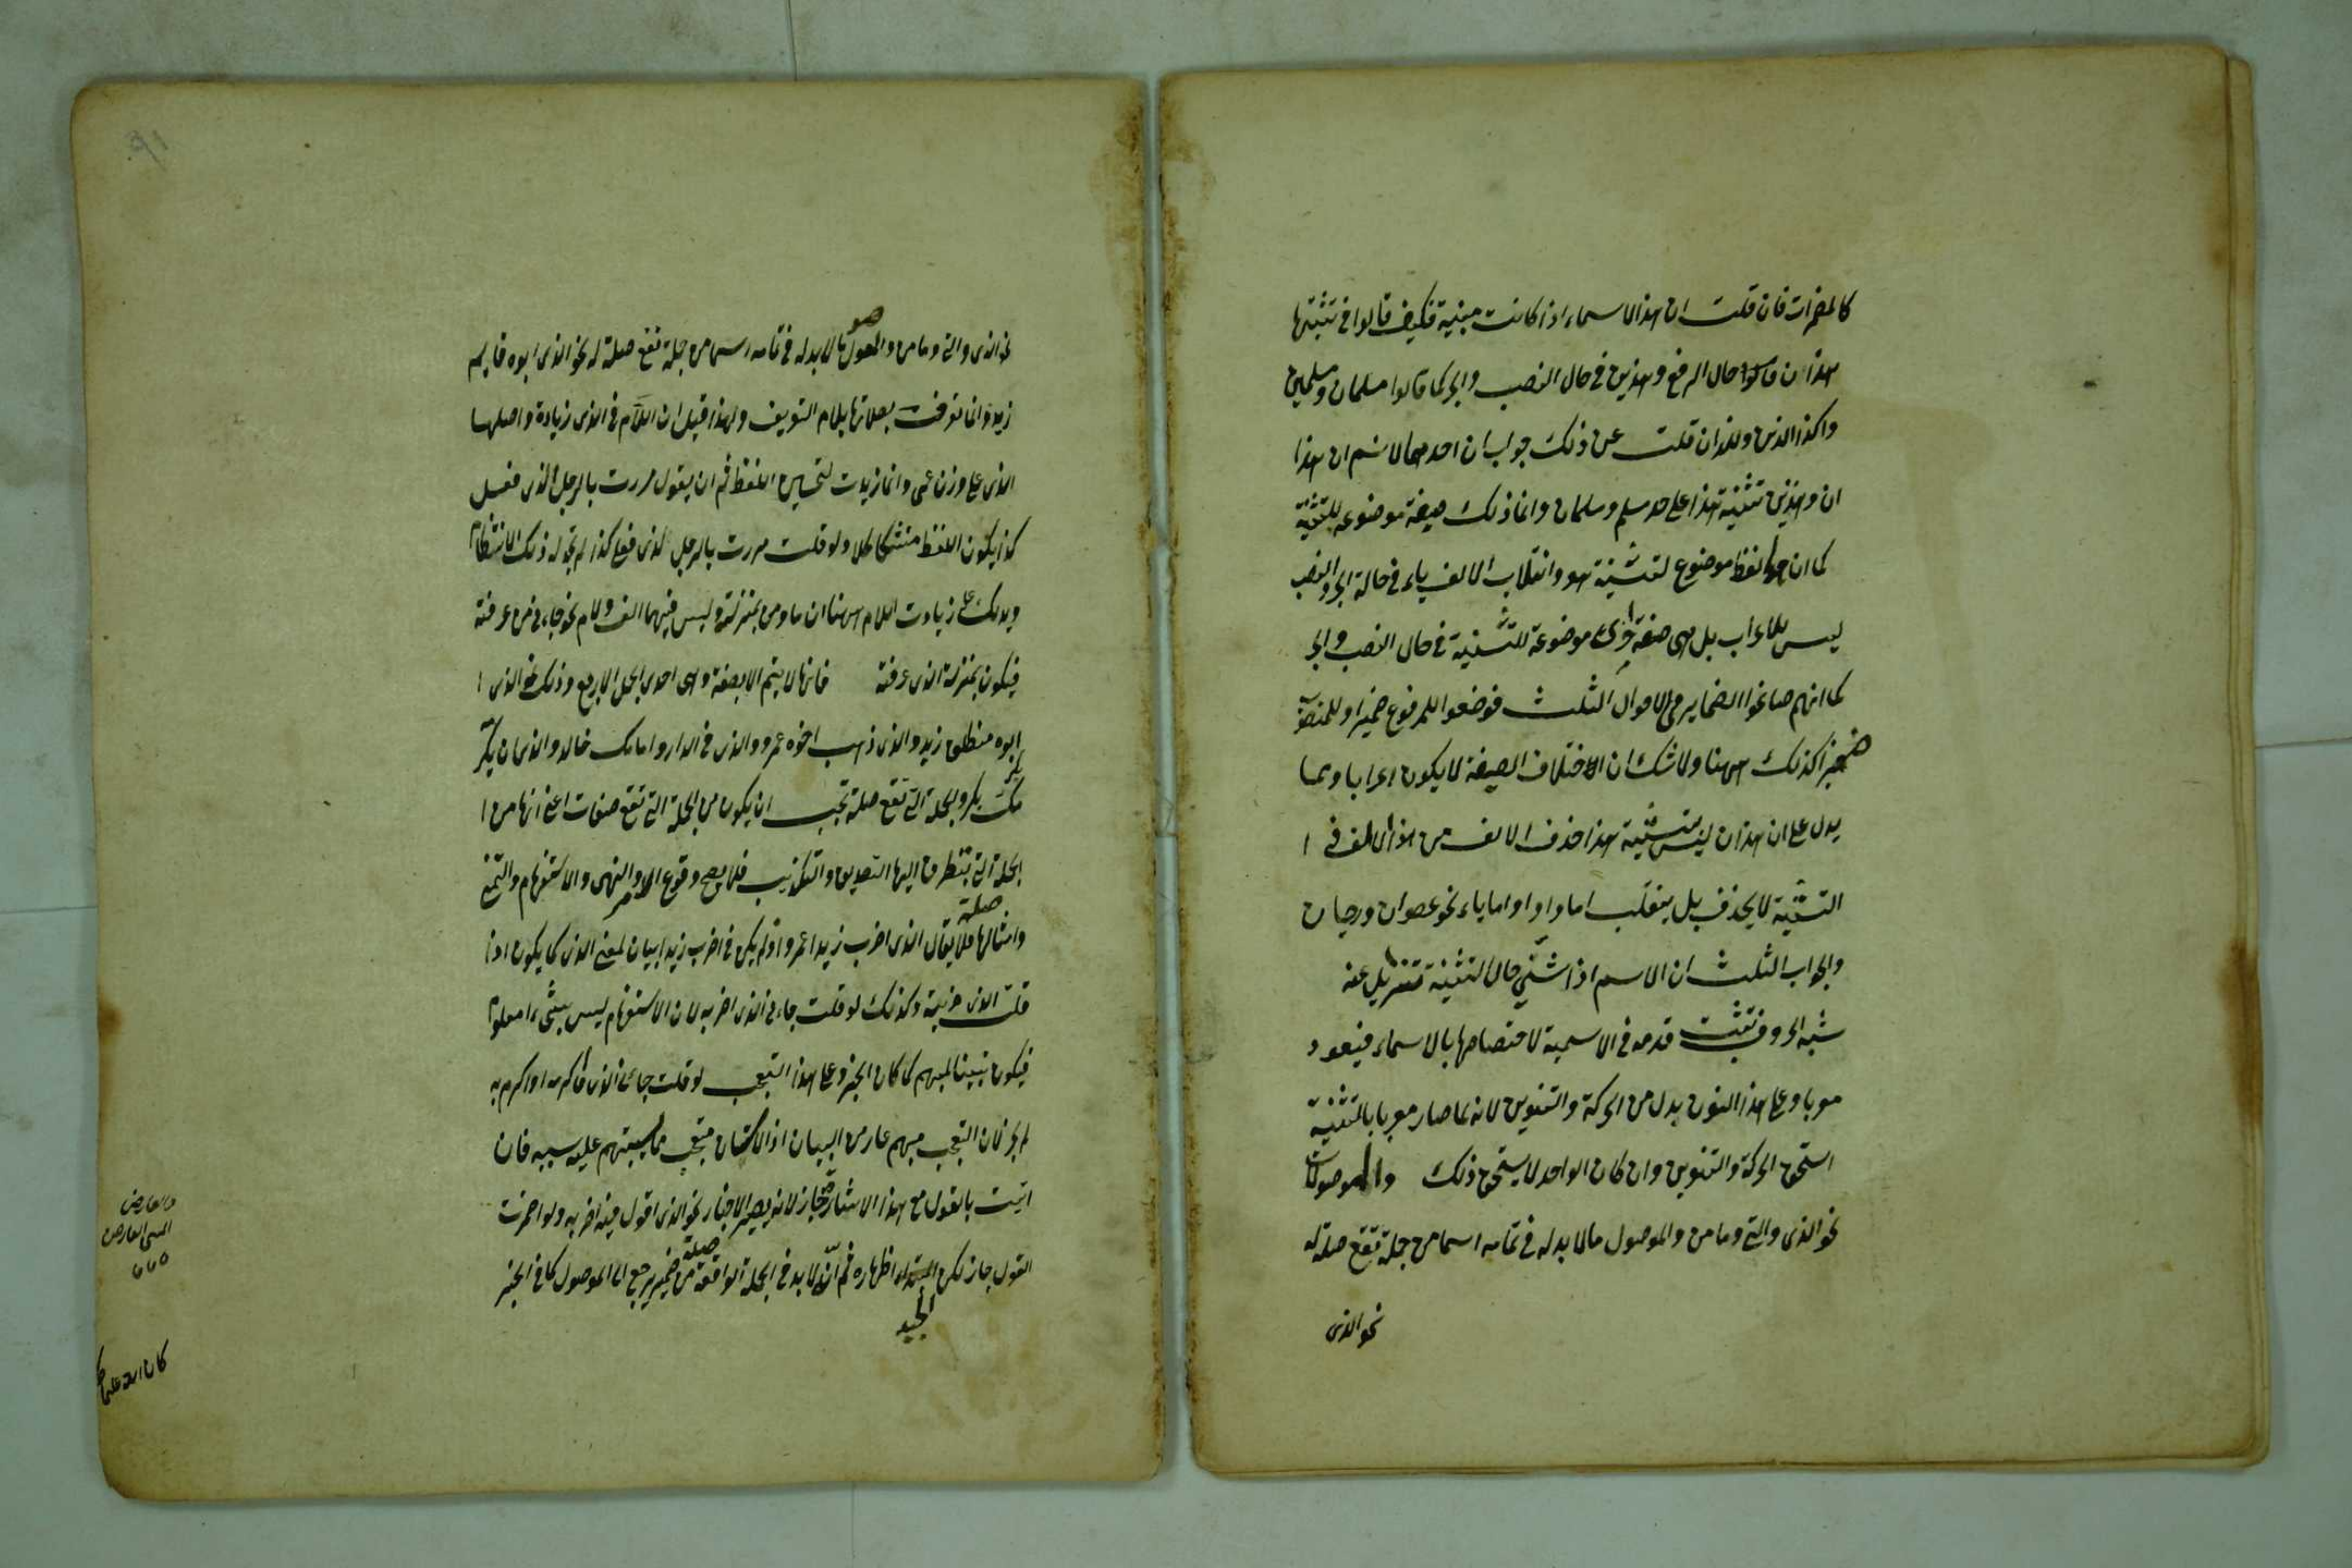 كالمضمرات فان قلت ان هذا الاسماء اذا كانت مبنية فكيف قالوا في تثنيتها
هذان قالوا حال الرفع وهذين في حال النصب والجر كما قالوا مسلمان ومسلمين
وكذا الذين قلت عن ذلك جوابان احدهما لانسلم ان هذا
ان وهذين تثنية هذا على حد مسلم ومسلمان وانما ذلك صيغة موضوعه للتثنية
كما ان هما لفظ موضوع لتثنية هو وانقلاب الالف ياء في حالة الجر والنصب
ليس للاعراب بل هى صيغة اخرى موضوعة للتثنية في حال النصب والجر
كما انهم صاغوا الضماير في الاحوال الثلث فوضعوا للمرفوع ضميرا وللمنصوب
ضميرا كذلك ههنا ولا شك ان الاختلاف الصيغة لا يكون اعرابا ومما
يدل على ان هذان ليس تثنية هذا حذف الالف من هذا الالف في ا
التثنية لا يحذف بل ينقلب اما واوا واما ياء نحو عصوان ورحيان
والجواب الثلث ان الاسم اذا ثنى حال التثنية تنزيل عنه
شبه الحروف تثبت قدمه في الاسمية لاختصاصها بالاسماء فيعود
معربا وعلى هذا النون بدل من الحركة والتنوين لانه لما صار معربا بالتثنية
استحق الحركة والتنوين وان كان الواحد لا يستحق ذلك والموصولات
نحو الذى والتي وما ومن والموصول مالا بد له في تمامه اسما من جملة تقع صلة له
نحو الذى
نحو الذى والتي وما من والموصول مالا بد له في تمامه اسما من جملة تقع صلة له نحو الذى ابوه قايم
زيد وانما تعرفت بصلاتها بلام التعريف ولهذا قيل ان اللام في الذى زيادة واصلها
الذى على وزن عمى وانما زيدت لتحسين اللفظ ثم ان يقول مررت بالرجل الذى فعل
كذا يكون اللفظ متشاكلا ولو قلت مررت بالرجل لذى فعل كذا لم تجد له ذلك الانتظام
ويدلك على زيادت اللام ههنا ان ما ومن بمنزلته وليس فيهما الف ولام نحو جاءنى من عرفته
فيكون بمنزلة الذى عرفته فانها لا يتم الا بصفة وهى احدى الجمل الاربع وذلك نحو الذى ا
ابوه منطلق زيد والذى ذهب اخوه عمرو والذى في الدار وامامك خالد والذى ان يكر
مك بكر والجملة التي تقع صلة تجب ان يكون من الجملة التي تقع صفات اعنى انها من ا
الجملة التي يتطرق اليها التصديق والتكذيب فلا يصح وقوع الامر والنهى والاستفهام والتمنى
وامثالها صلة فلا يقال الذى اضرب زيدا عمرو اذ لم يكن في اضرب زيدا بيان لمعنى الذى كما يكون اذا
قلت الذى ضربته وكذلك لو قلت جاءنى الذى اضربه لان الاستفهام ليس بشىء معلوم
فيكون تبيينا للمبهم كما كان الخبر وعلى هذا التعجب لو قلت جاءنى الذى ما اكرمه او اكرم به
لم يجز لان التعجب مبهم عار من البيان اذ الانسان متعجب مما يستبهم عليه سببه فان
اتيت بالقول مع هذا الاشياء جاز لانه يصير الاخبار نحو الذى اقول فيه اضربه ولو اضمرت
القول جاز لكن الجيد اظهاره ثم انه لا بد في الجملة الواقعة صلة من ضمير يرجع الى الموصول كما في الخبر